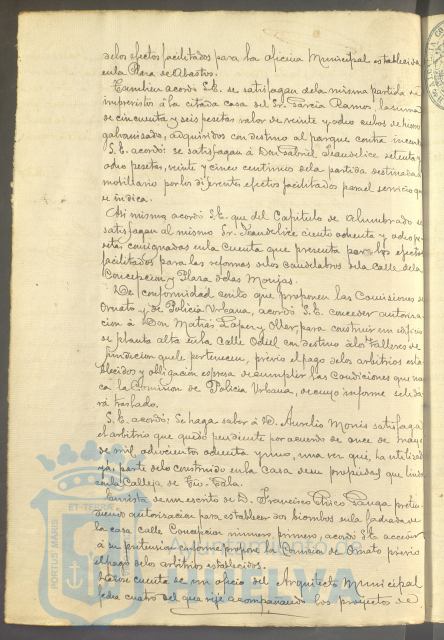 delos efectos facilitados para la oficina Municipal establecida
en la Plaza de Abastos.
Tambien acordó S.E. se satisfagan dela misma partida de
imprevistos á la citada casa del Sr. Garcia Ramos la suma
de cincuenta y seis pesetas valor de veinte y ocho cubos de hierro
galvanizado, adquiridos con destino al parque contra incendios
S.E. acordó: se satisfagan á Don Gabriel setenta y
ocho pesetas, veinte y cinco centimos dela partida destinada á
mobiliario por los diferentes efectos facilitados para el servicio que
se indica.
Asi mismo acordó S.E. que del Capitulo de Alumbrado se
satisfagan al mismo Sr. ciento ochenta y ocho pe-
setas consignadas en la Cuenta que presenta por los efectos
facilitados para las reformas delos candelabros dela calle dela
Concepcion y Plaza delas Monjas.
De conformidad conlo que proponen las Comisiones de
Ornato y de Policia Urbana, acordó S.E. conceder autoriza-
cion á Don Matias Lopez y para construir un edificio
de planta alta en la Calle Odiel con destino á los talleres de
fundicion que le pertenecen, previo el pago delos arbitrios esta-
blecidos y obligacion espresa de cumplir las Condiciones que mar-
ca la Comision de Policia Urbana, de cuyo informe se le da-
rá traslado.
S.E. acordó: Se haga saber á D. Aurelio Monis satisfaga
el arbitrio que quedó pendiente por acuerdo de once de Mayo
de mil ochocientos ochenta y uno, una vez que ha utilizado
yá, parte delo construido en la Casa de su propiedad que linda
con la Calleja de Tio Tala.
En vista de un escrito de D. Francisco preten-
diendo autorizacion para establecer dos biombos en la fachada de
la casa calle Concepcion numero primero, acordó S.E. acceder
á su pretension conforme propone la Comision de Ornato previo
el pago delos arbitrios establecidos.
Dióse cuenta de un oficio del Arquitecto Municipal
fecha cuatro del que rije acompañando los proyectos de
PORTUS MARIS